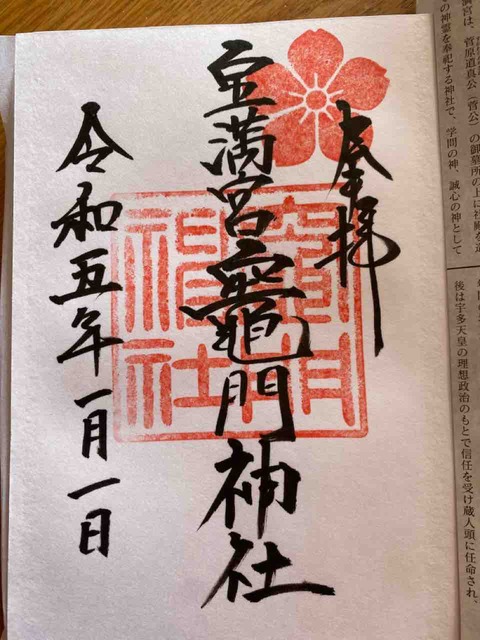 奉拝
宝満宮竈門神社
令和五年一月一日
竈門
神社
満宮は、菅原道真公（菅公）の御墓所の上に社殿を造
の神霊を奉祀する神社で、学問の神、誠心の神として
後は宇多天皇の理想政治のもとで信任を受け蔵人頭に任命され、